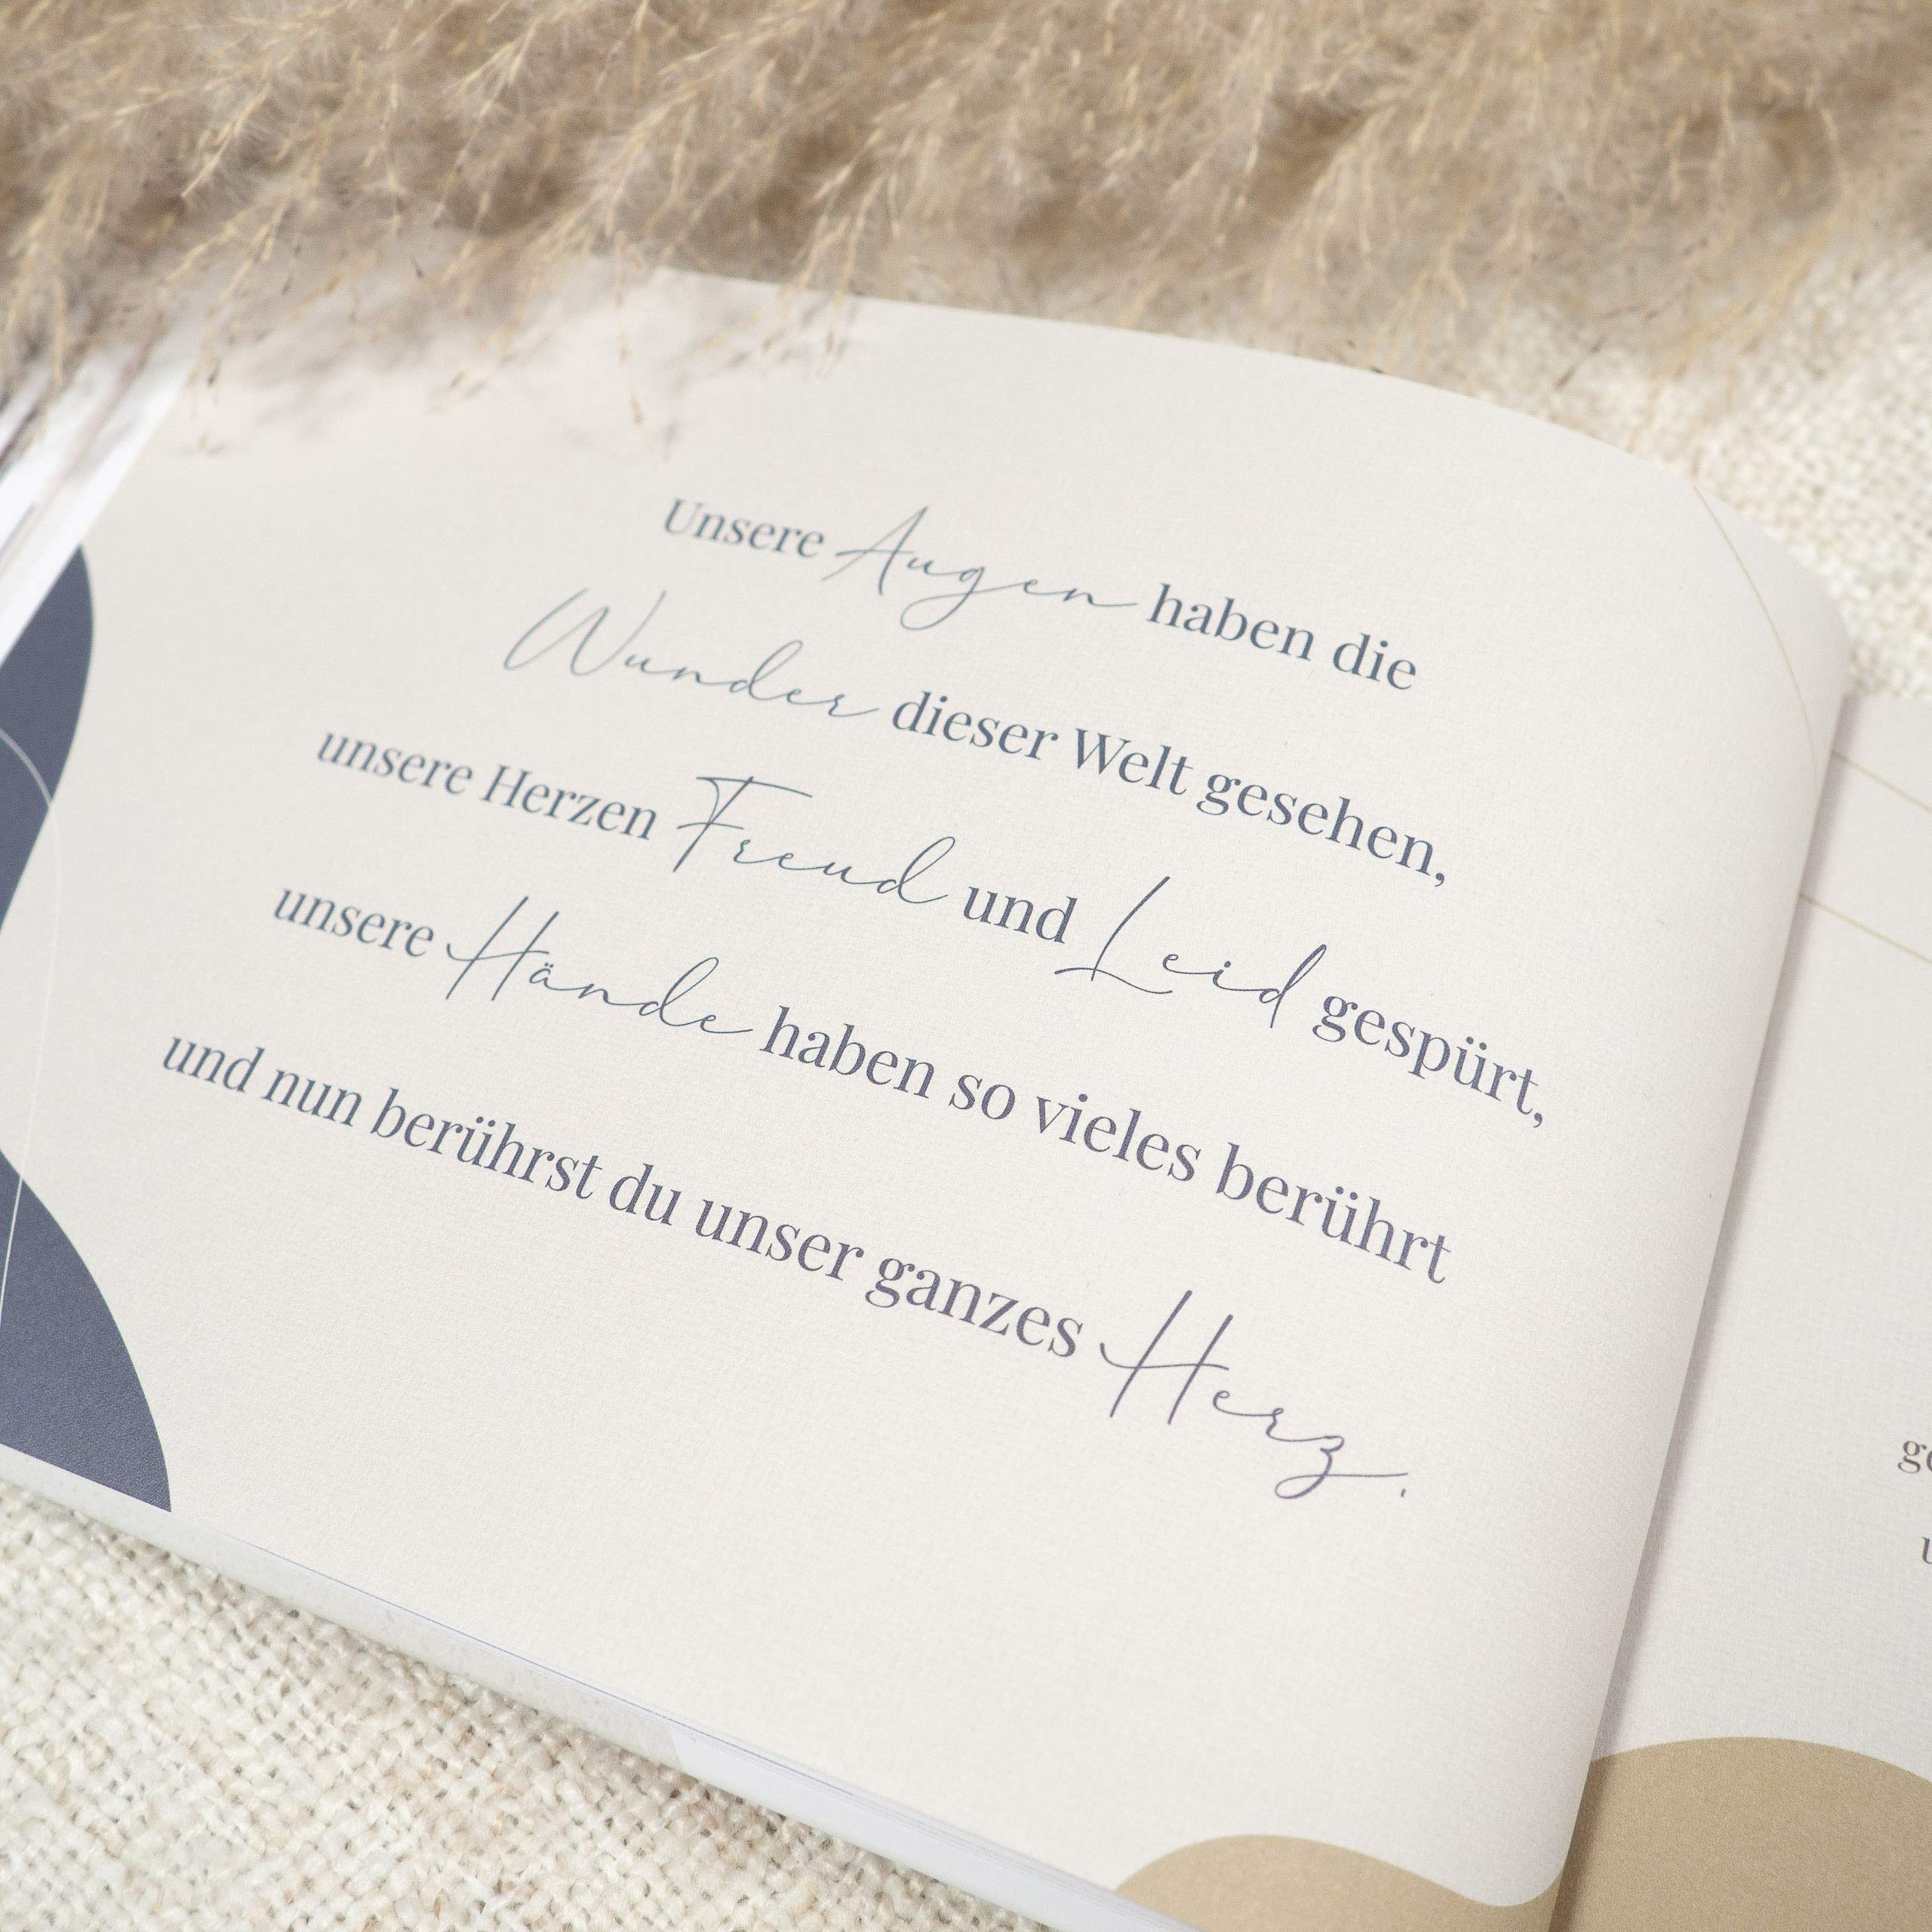 Unsere Augen haben die
Wunder dieser Welt gesehen,
unsere Herzen Freud und Leid gespürt,
unsere Hände haben so vieles berührt
und nun berührst du unser ganzes Herz.